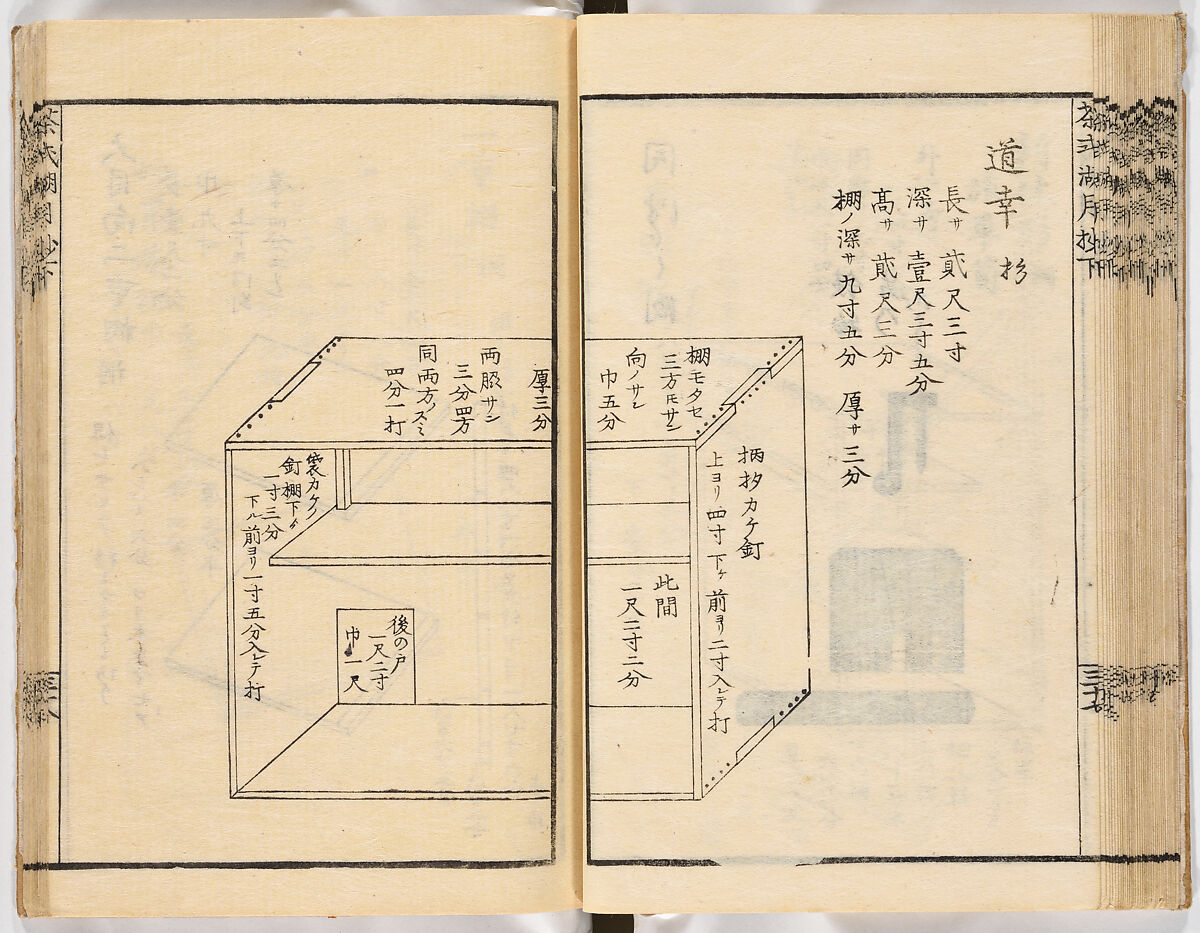 道幸 杉
長サ 貳尺三寸
深サ 壹尺三寸五分
髙サ 貳尺三分
棚ノ深サ九寸五分 厚サ三分
棚モタセ
三方ヒモサン
向ノサン
巾五分
柄杓カケ釘
上ヨリ四寸下ケ前ヨリ二寸入レテ打
此間
一尺二寸二分
厚三分
両脇サン
三分四方
同両方ノスミ
四分一打
袋カケノ
釘棚下ヨリ
一寸三分
下ル前ヨリ一寸五分入レテ打
後の戸
一尺二寸
巾一尺